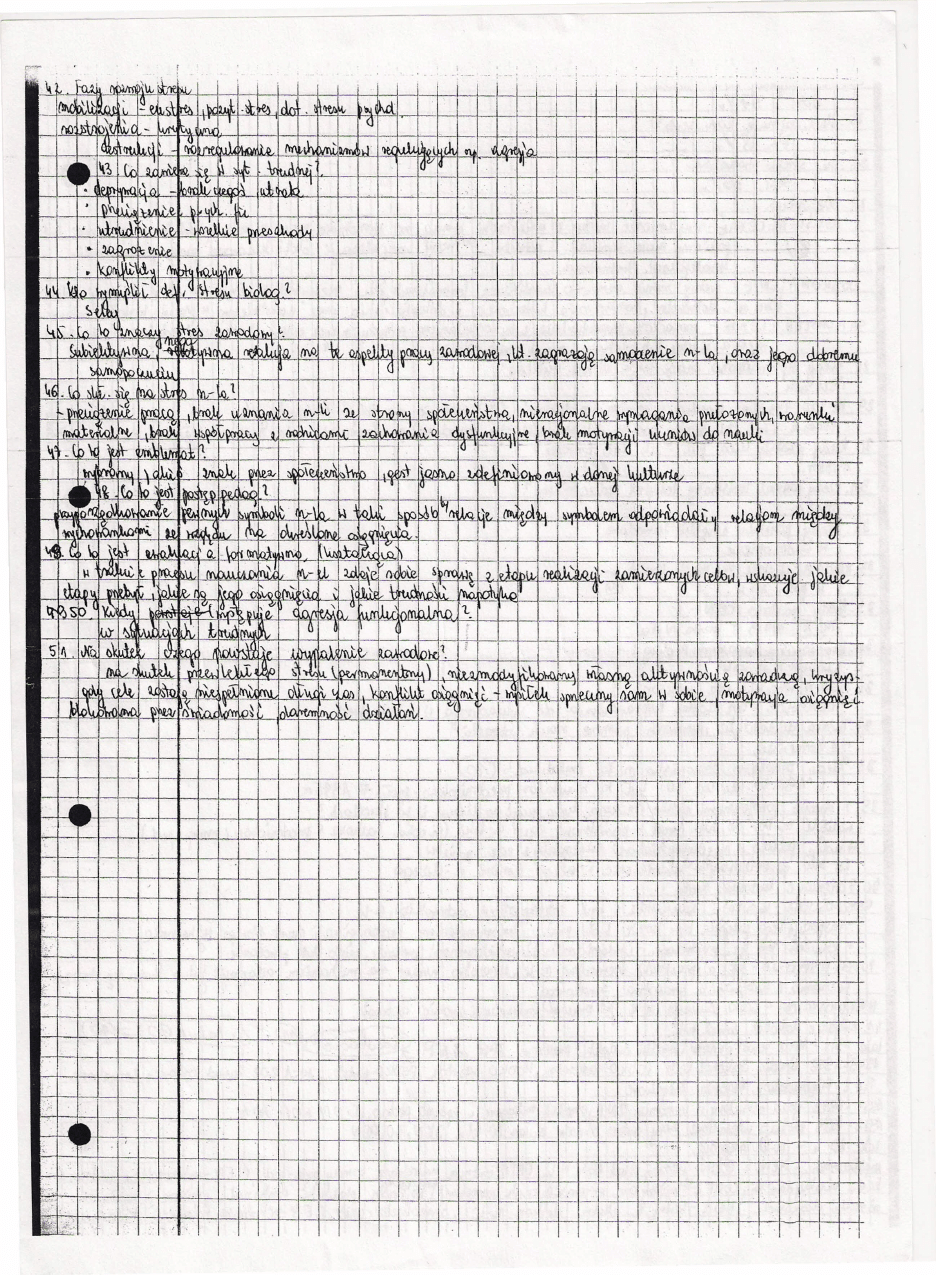 42. Fazy rozwoju stresu
mobilizacji - eustres, pozyt. stres, dot. stresu psychol.
rozstrojenia - krytyczna
destrukcji - rozregulowanie mechanizmów regulujących np. agresja
43. Co zawiera się w syt. trudnej?
• deprywacja - brak czegoś, utrata
• przeciążenie psych. fiz
• utrudnienie - wszelkie przeszkody
• zagrożenie
• konflikty motywacyjne
44. Kto wymyślił def. stresu biolog?
Selay
45. Co to znaczy stres zawodowy?
Subiektywna, negatywna reakcja na te aspekty pracy zawodowej, kt. zagrażają samoocenie n-la, oraz jego dobremu
samopoczuciu
46. Co skł. się na stres n-la?
- przeciążenie pracą, brak uznania n-li ze strony społeczeństwa, nieracjonalne wymagania przełożonych, warunki
materialne, brak współpracy z rodzicami, zachowania dysfunkcyjne, brak motywacji uczniów do nauki
47. Co to jest emblemat?
wybrany znak przez społeczeństwo, gest jasno zdefiniowany w danej kulturze
48. Co to jest postęp pedag?
przyporządkowanie pewnych symboli n-la w taki sposób by relacje między symbolem odpowiadały relacjom między
wychowankami ze względu na określone osiągnięcia.
49. Co to jest ewaluacja formatywna (kształcąca)
w trakcie procesu nauczania n-el zdaje sobie sprawę z etapu realizacji zamierzonych celów, wskazuje jakie
etapy przebył, jakie są jego osiągnięcia i jakie trudności napotyka
50. Kiedy powstaje (występuje agresja funkcjonalna?
w sytuacjach trudnych
51. Na skutek czego powstaje wypalenie zawodowe?
na skutek przewlekłego stresu (permanentny), niezmodyfikowany własną aktywnością zaradczą, kryzys -
gdy cele zostają niespełnione długi czas, konflikt osiągnięć - wysiłek sprzeczny sam w sobie, motywacja osiągnięć
blokowana przez świadomość, daremność działań.